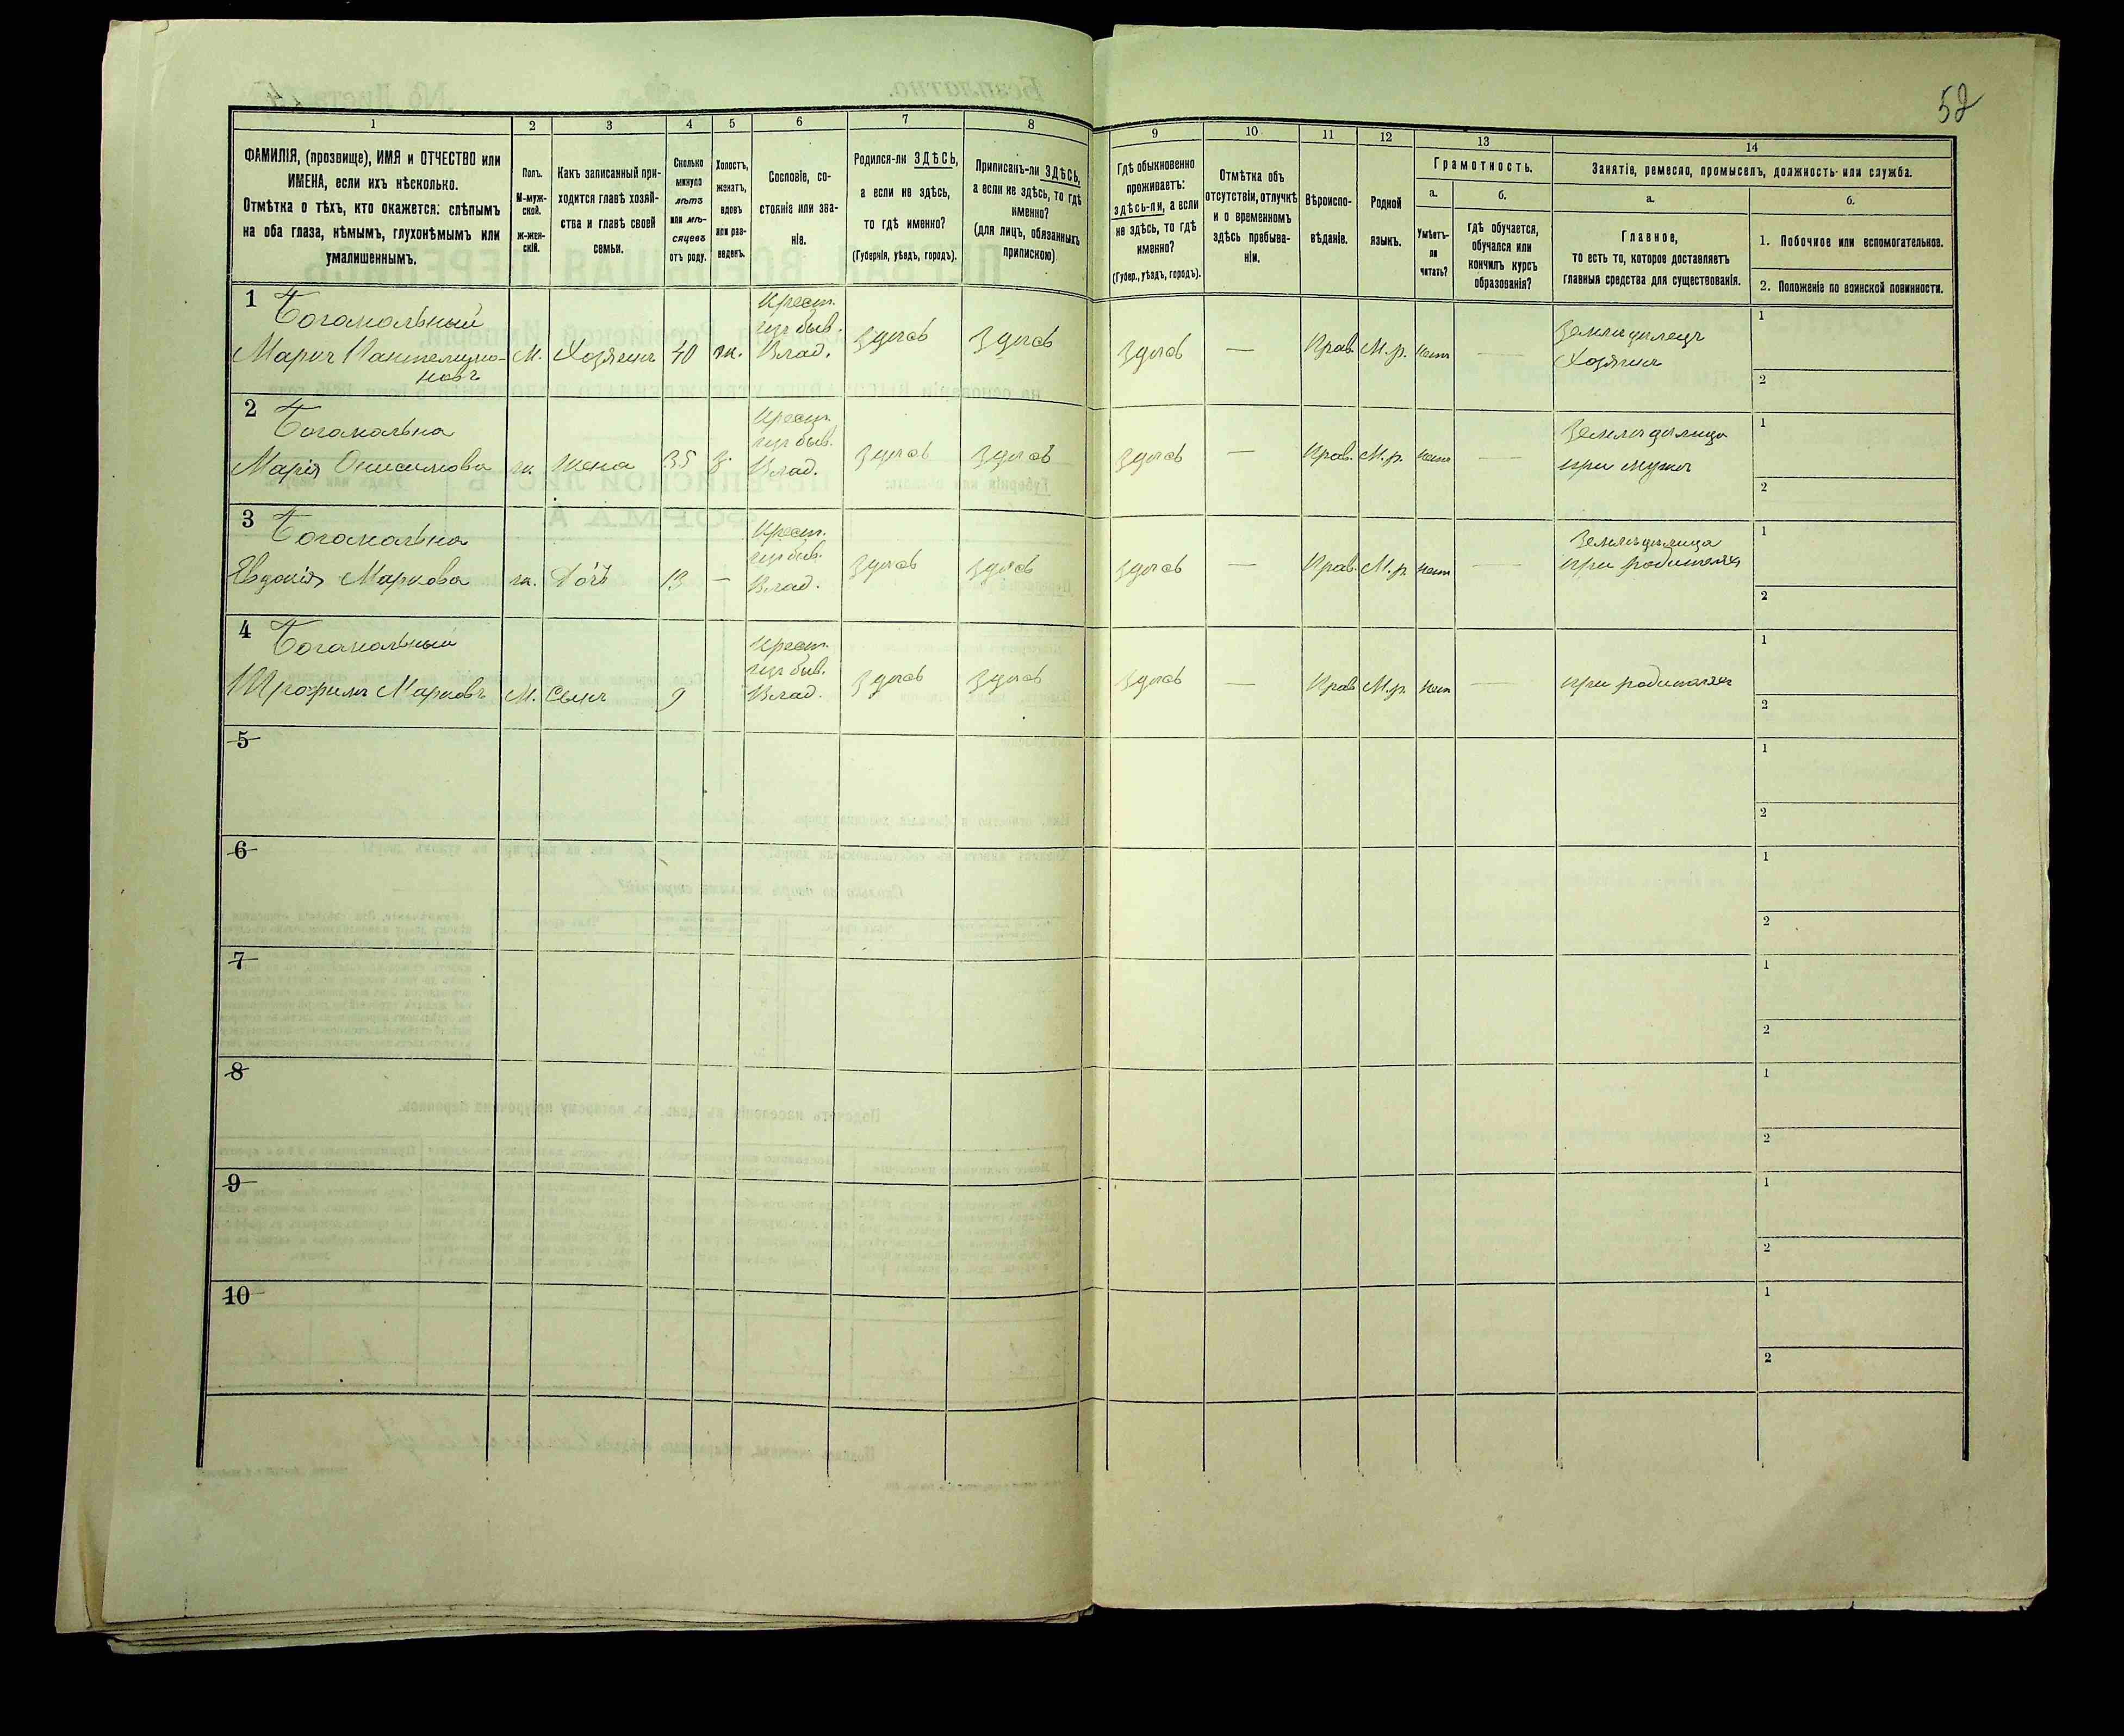 52
1 2 3 4 5 6 7 8 9 10 11 12 13 14
ФАМИЛІЯ, (прозвище), ИМЯ и ОТЧЕСТВО или
ИМЕНА, если ихъ нѣсколько.
Отмѣтка о тѣхъ, кто окажется: слѣпымъ
на оба глаза, нѣмымъ, глухонѣмымъ или
умалишеннымъ.
Полъ.
М-муж-
ской.
Ж-жен-
скій.
Какъ записанный при-
ходится главѣ хозяй-
ства и главѣ своей
семьи.
Сколько
минуло
лѣтъ
или мѣ-
сяцевъ
отъ роду.
Холостъ,
женатъ,
вдовъ
или раз-
веденъ.
Сословіе, со-
стояніе или зва-
ніе.
Родился-ли ЗДѢСЬ,
а если не здѣсь,
то гдѣ именно?
(Губернія, уѣздъ, городъ).
Приписанъ-ли ЗДѢСЬ,
а если не здѣсь, то гдѣ
именно?
(для лицъ, обязанныхъ
припискою)
Гдѣ обыкновенно
проживаетъ:
здѣсь-ли, а если
не здѣсь, то гдѣ
именно?
(Губер., уѣздъ, городъ).
Отмѣтка объ
отсутствіи, отлучкѣ
и о временномъ
здѣсь пребыва-
ніи.
Вѣроиспо-
вѣданіе.
Родной
языкъ.
Грамотность.
а.
Умѣетъ-
ли
читать?
б.
гдѣ обучается,
обучался или
кончилъ курсъ
образованія?
Занятіе, ремесло, промыселъ, должность или служба.
а.
Главное,
то есть то, которое доставляетъ
главныя средства для существованія.
б.
1. Побочное или вспомогательное.
2. Положеніе по воинской повинности.
1
Марки
М. Хозяинъ 40 ж.
Крест.
изъ быв.
Влад.
здѣсь здѣсь здѣсь — Прав. М.р. нѣтъ —
Земледѣлецъ
Хозяинъ
1
2
2
Марія Онисимова ж. Жена 35 з.
Крест.
изъ быв.
Влад.
здѣсь здѣсь здѣсь — Прав. М.р. нѣтъ —
Земледѣлица
при мужѣ
1
2
3
Евдокія Маркова ж. Дочь 13 —
Крест.
изъ быв.
Влад.
здѣсь здѣсь здѣсь — Прав. М.р. нѣтъ —
Земледѣлица
при родителяхъ
1
2
4
Трофимъ Марковъ М. Сынъ 9
Крест.
изъ быв.
Влад.
здѣсь здѣсь здѣсь — Прав М.р. нѣтъ —
при родителяхъ
1
2
5
1
2
6
1
2
7
1
2
8
1
2
9
1
2
10
1
2